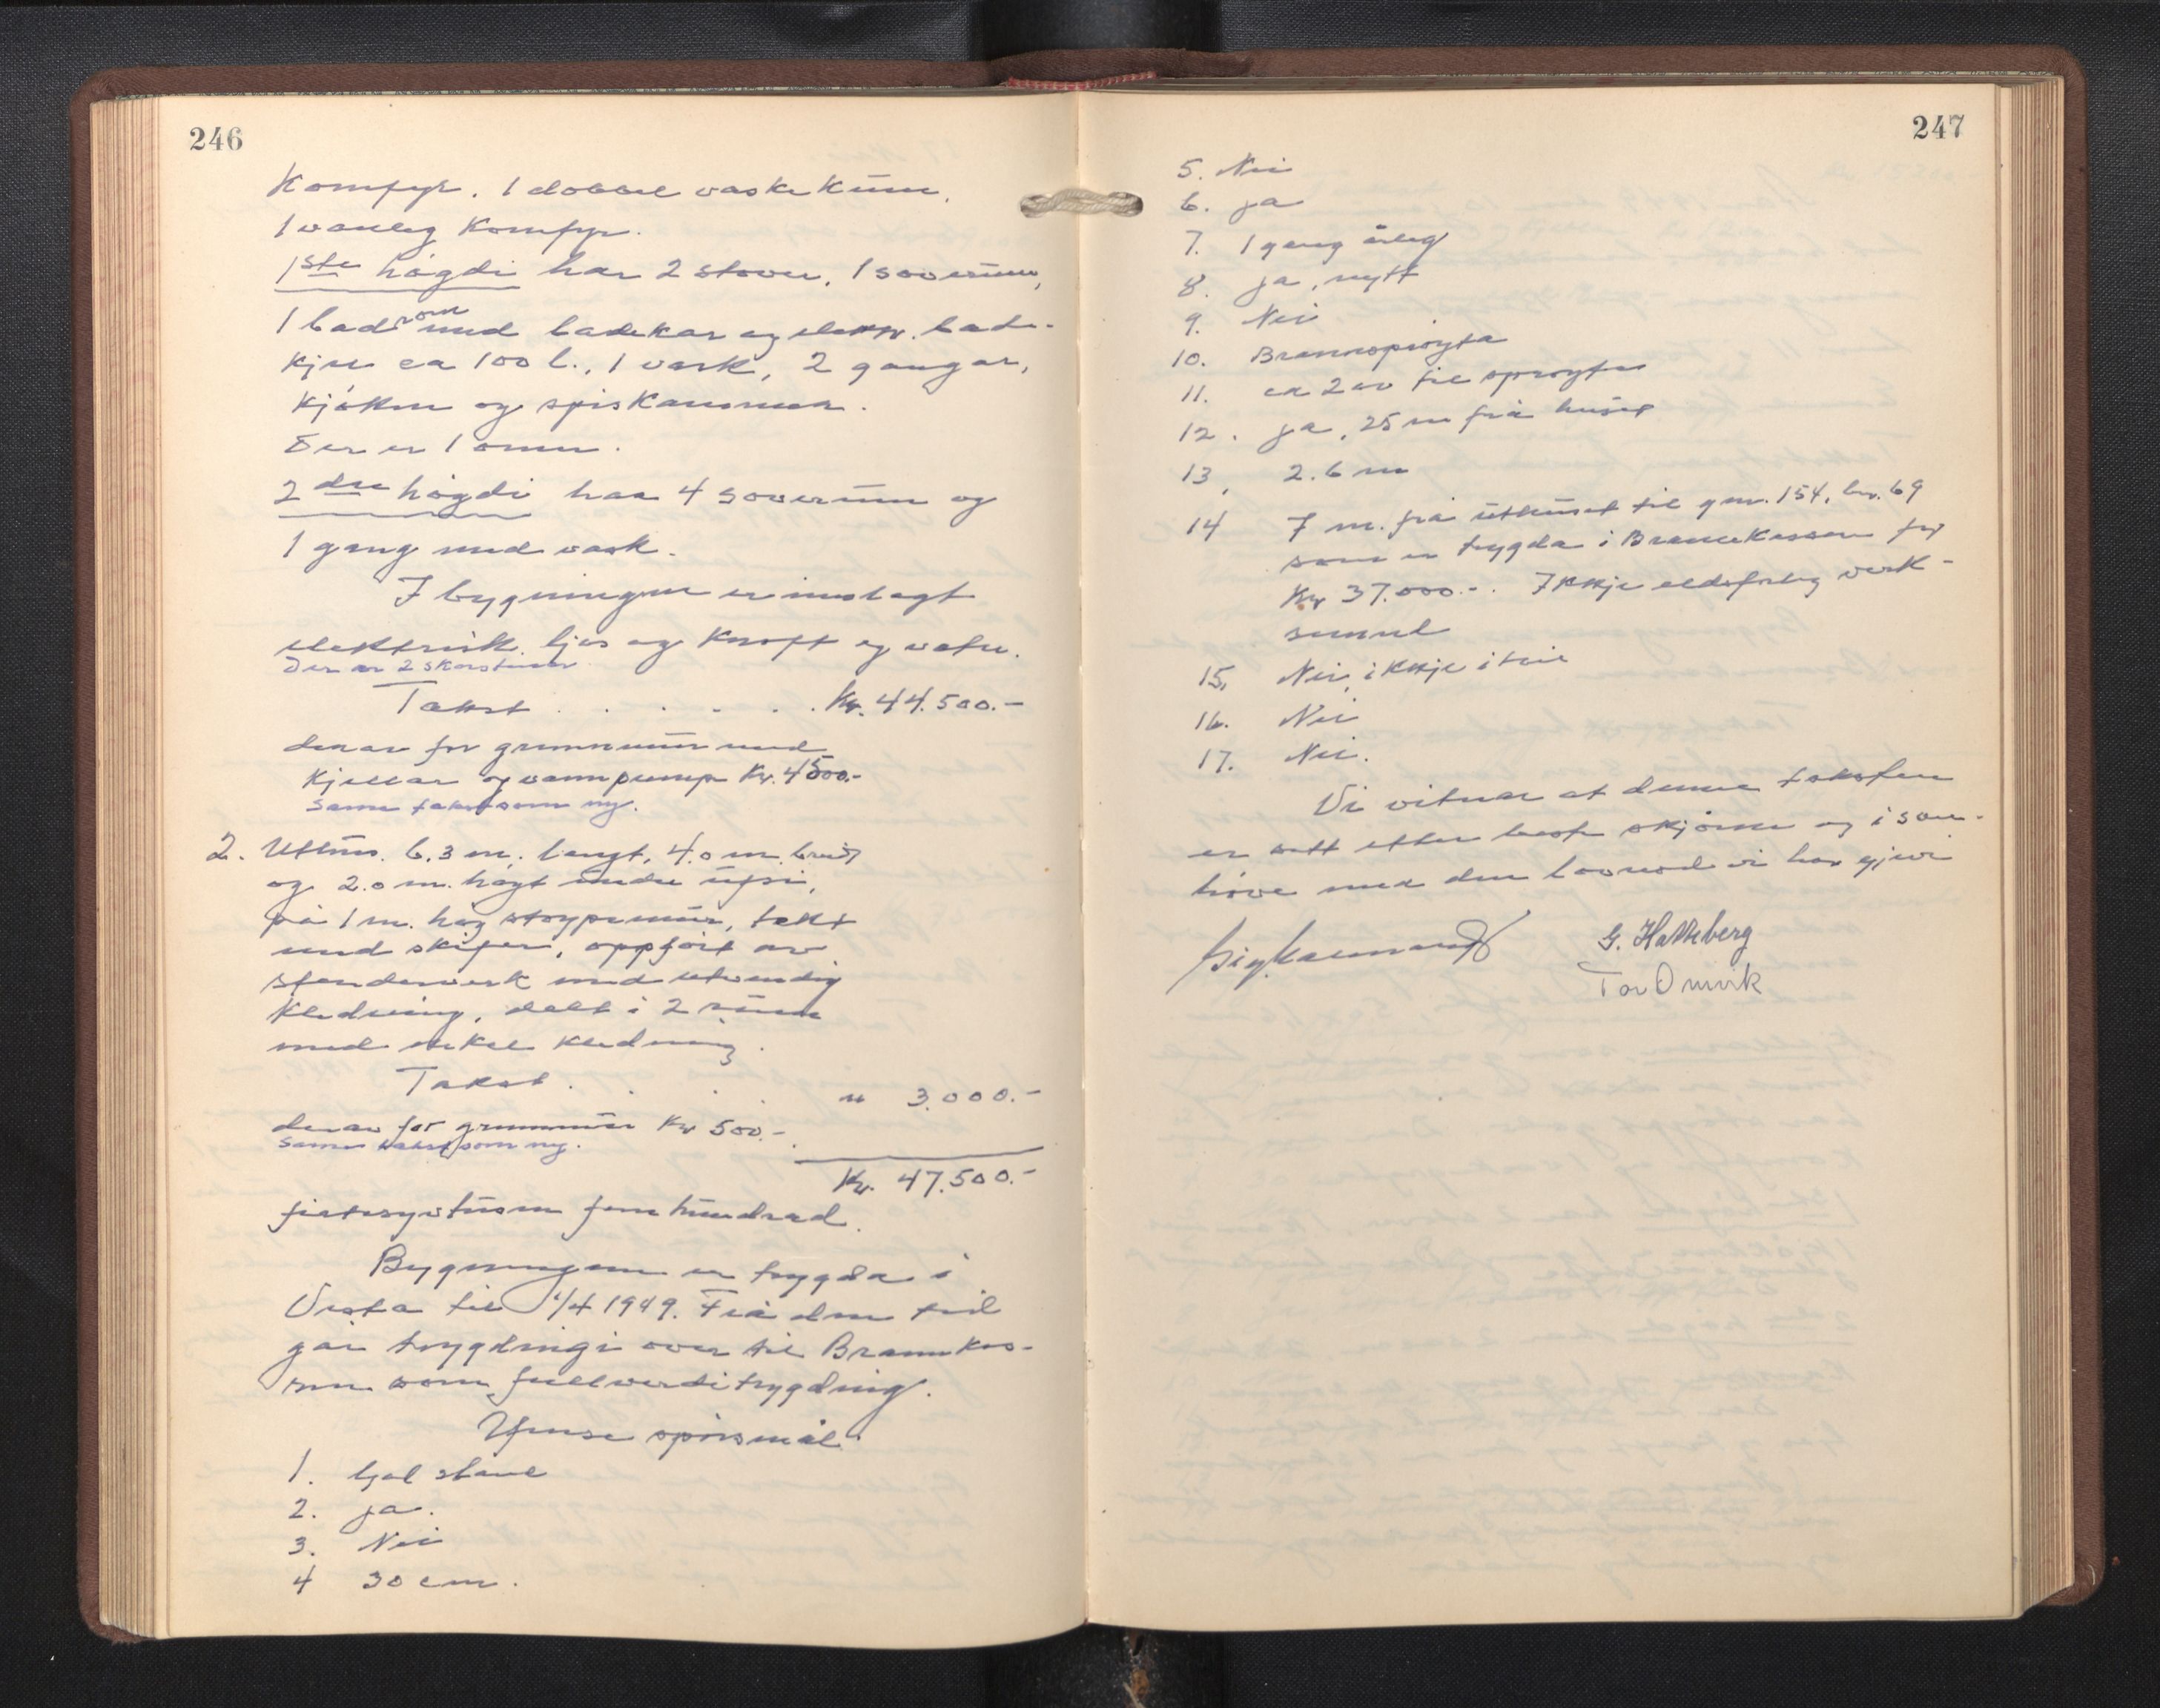 246
Komfyr. 1 dobbel vaskekum,
1 vanleg Komfyr.
1ste høgdi har 2 stover, 1 soverum,
1 badrom med badekar og elektr. bade-
kjel ca 100 l., 1 vask, 2 gangar,
kjøken og spiskammer.
Der er 1 omn.
2dre høgdi har 4 soverum og
1 gang med vask.
I bygningen er innlagt
elektrisk ljos og kraft og vatn.
Der er 2 skorsteiner
Takst . . . . . . Kr. 44.500.-
derav for grunnmur med
kjellar og vannpump Kr. 4500.-
Same takst som ny.
2. Uthus. 6.3 m. langt, 4.0 m. breidt
og 2.0 m. høgt under ufsi,
på 1 m. høg støypemur, tekt
med skifer, oppført av
stenderverk med utvendig
kledning, delt i 2 rum
med enkel kledning.
Takst . . . . " 3.000.-
derav for grunnmur Kr 500.-
Same takst som ny.
Kr. 47.500.-
førtisyvtusen femhundrad.
Bygningene er trygda i
Vesta til 1/4 1949. Frå den tid
går trygdingi over til Brannkas-
sen som fullverditrygding.
Ymse spørsmål.
1. Gol stane
2. ja.
3. Nei
4 30 cm.
247
5. Nei
6. ja
7. 1 gang årleg
8. ja, nytt
9. Nei
10. Brannsprøyta
11. ca 2 av til sprøyten
12. ja, 25 m frå huset
13, 2.6 m
14 7 m. frå uthuset til gnr. 154, bnr. 69
som er trygda i Brannkassen for
Kr 37.000.-. Ikkje eldsfarleg verk-
semd
15, Nei, ikkje i bui
16. Nei
17. Nei.
Vi vitnar at denne taksten
er sett etter beste skjønn og i sam-
høve med den lovnad vi har gjevi
G. Hatteberg
Tor Omvik